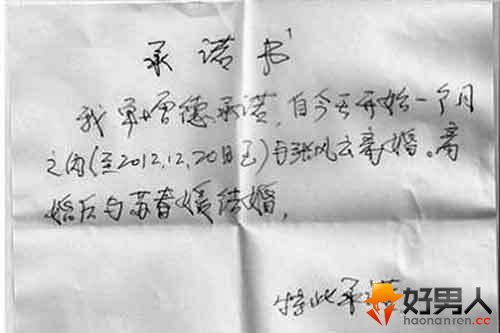 承诺书
我单增德承诺,自今天开始一个月
之内(至2012.12.20日止)与张风云离婚。离
婚后与苏春媛结婚.
特此承诺
好男人
haonanren.cc